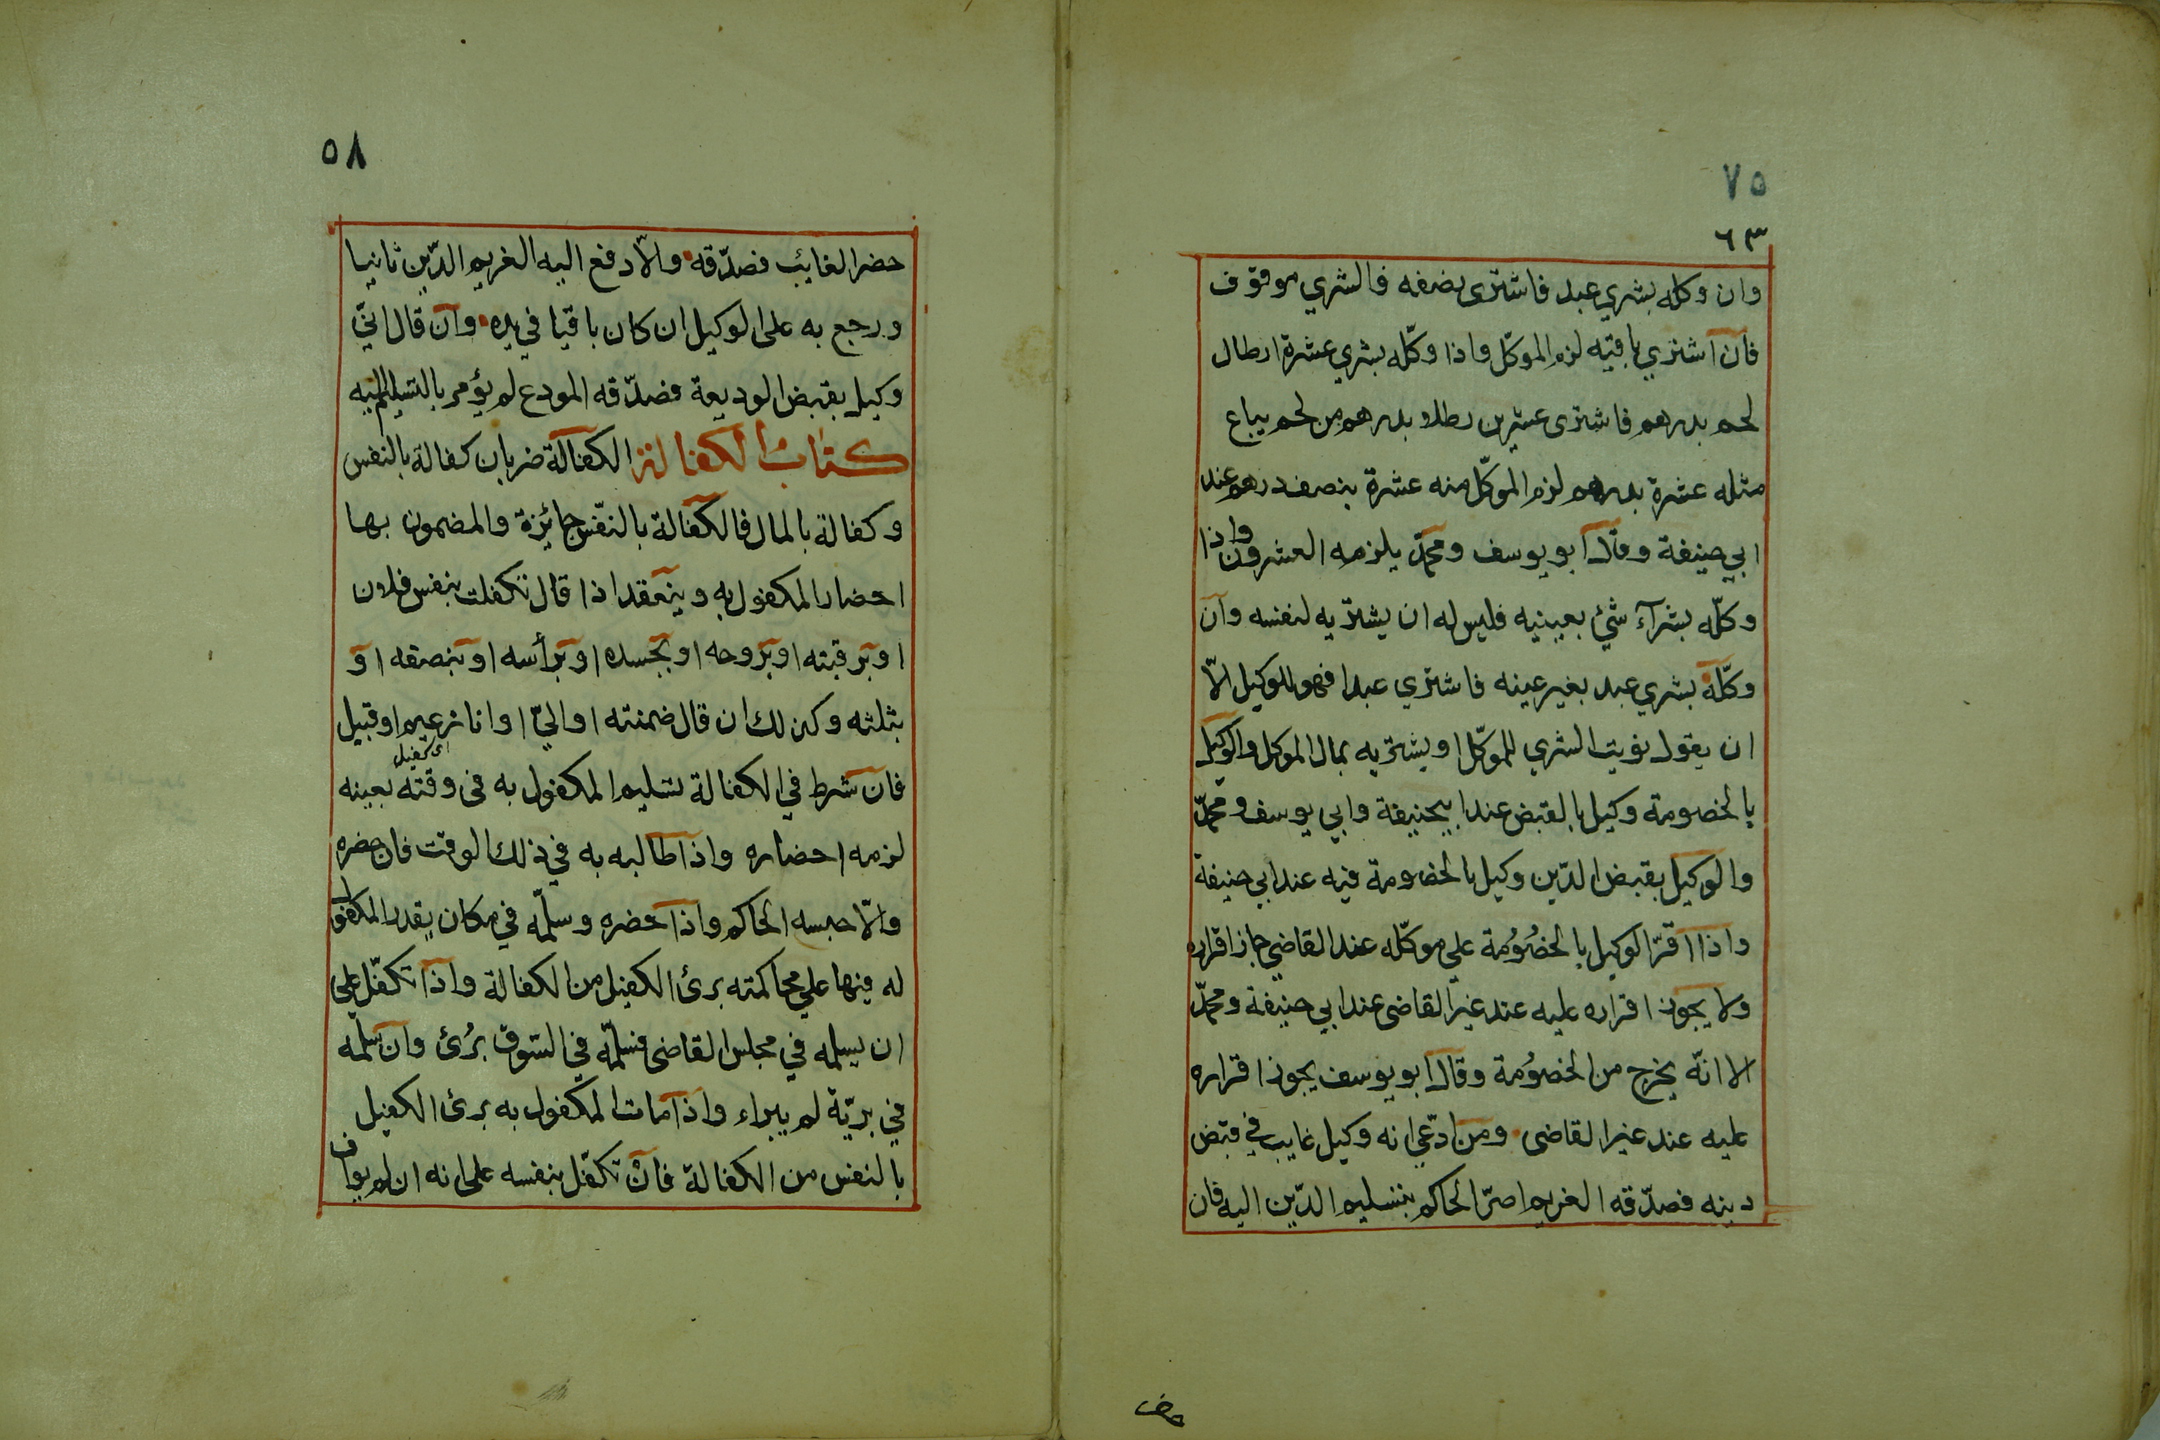 ٧٥
٦٣
وان وكله بشري عبد فاشترى نصفه فالشري موقوف
فان اشتري باقيه لزم الموكّل واذا وكّله بشري عشرة ارطال
لحم بدرهم فاشترى عشرين رطلا بدرهم من لحم يباع
مثله عشرة بدرهم لزم الموكّل منه عشرة بنصف درهم عند
ابي حنيفة وقال ابو يوسف ومحمّد يلزمه العشرون واذا
وكلّه بشرآء شئ بعينيه فليس له ان يشتريه لنفسه وان
وكلّه بشري عبد بغير عينه فاشتري عبدا فهو للوكيل الاّ
ان يقول نويت الشري للموكّل او يشتريه بمال الموكل والوكيل
بالخصومة وكيل بالقبض عند ابيحنيفة وابي يوسف ومحمّد
والوكيل بقبض الدّين وكيل بالخصومة فيه عند ابي حنيفة
واذا اقرّ الوكيل بالخصُومة علي موكّله عند القاضي جاز اقراره
ولا يجوز اقراره عليه عند غير القاضى عند ابي حنيفة ومحمّد
الا انّه يخرج من الخصُومة وقال ابو يوسف يجوز اقراره
عليه عند غير القاضى ومن ادّعي انه وكيل غايب في قبض
دينه فصدّقه الغريم امرّ الحاكم بتسليم الدّين اليه فان
حض
٥٨
حضر الغايب فصدّقه والاّ دفع اليه الغريم الدّين ثانيا
ورجع به على الوكيل ان كان باقيا في يده وان قال انّي
وكيل بقبض الوديعة فصدّقه المودع لم يؤمر بالتسليم اليه
كتاب الكفالة الكفالة ضربان كفالة بالنفس
وكفالة بالمال فالكفالة بالنّفس جائزة والمضمون بها
احضار المكفول به وينعقد اذا قال تكفلت بنفس فلان
او برقبته او بروحه او بجسده او برأسه او بنصفه او
بثلثه وكذلك ان قال ضمنته او اليّ او انا زعيم او قبيل
اى كفيل
فان شرط في الكفالة تسليم المكفول به فى وقته بعينه
لزمه احضاره واذا طالبه به في ذلك الوقت فان حضره
والاّ حبسه الحاكم واذا احضره وسلّمه في مكان يقدر المكفول
له فيها علي محاكمته برئ الكفيل من الكفالة واذا تكفّل على
ان يسلمه في مجلس القاضى فسلّمه في السّوق برُئ وان سلّمه
في بريّة لم يبراء واذا مات المكفول به برئ الكفيل
بالنفس من الكفالة فان تكفّل بنفسه على انه ان لم يواف